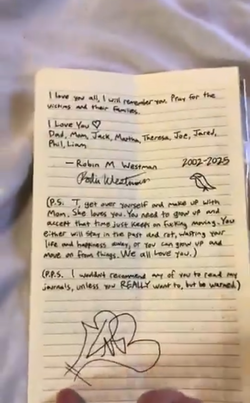 I love you all, I will remember you. Pray for the
victims and their families.
I Love You ♡
Dad, Mom, Jack, Martha, Theresa, Joe, Jared,
Phil, Liam
— Robin M Westman 2002-2025
(P.S. T, get over yourself and make up with
Mom. She loves you. You need to grow up and
accept that time just keeps on fucking moving. You
either will stay in the past and rot, wasting your
life and happiness away, or you can grow up and
move on from things. We all love you.)
(P.P.S. I wouldn't recommend any of you to read my
journals, unless you REALLY want to, but be warned)